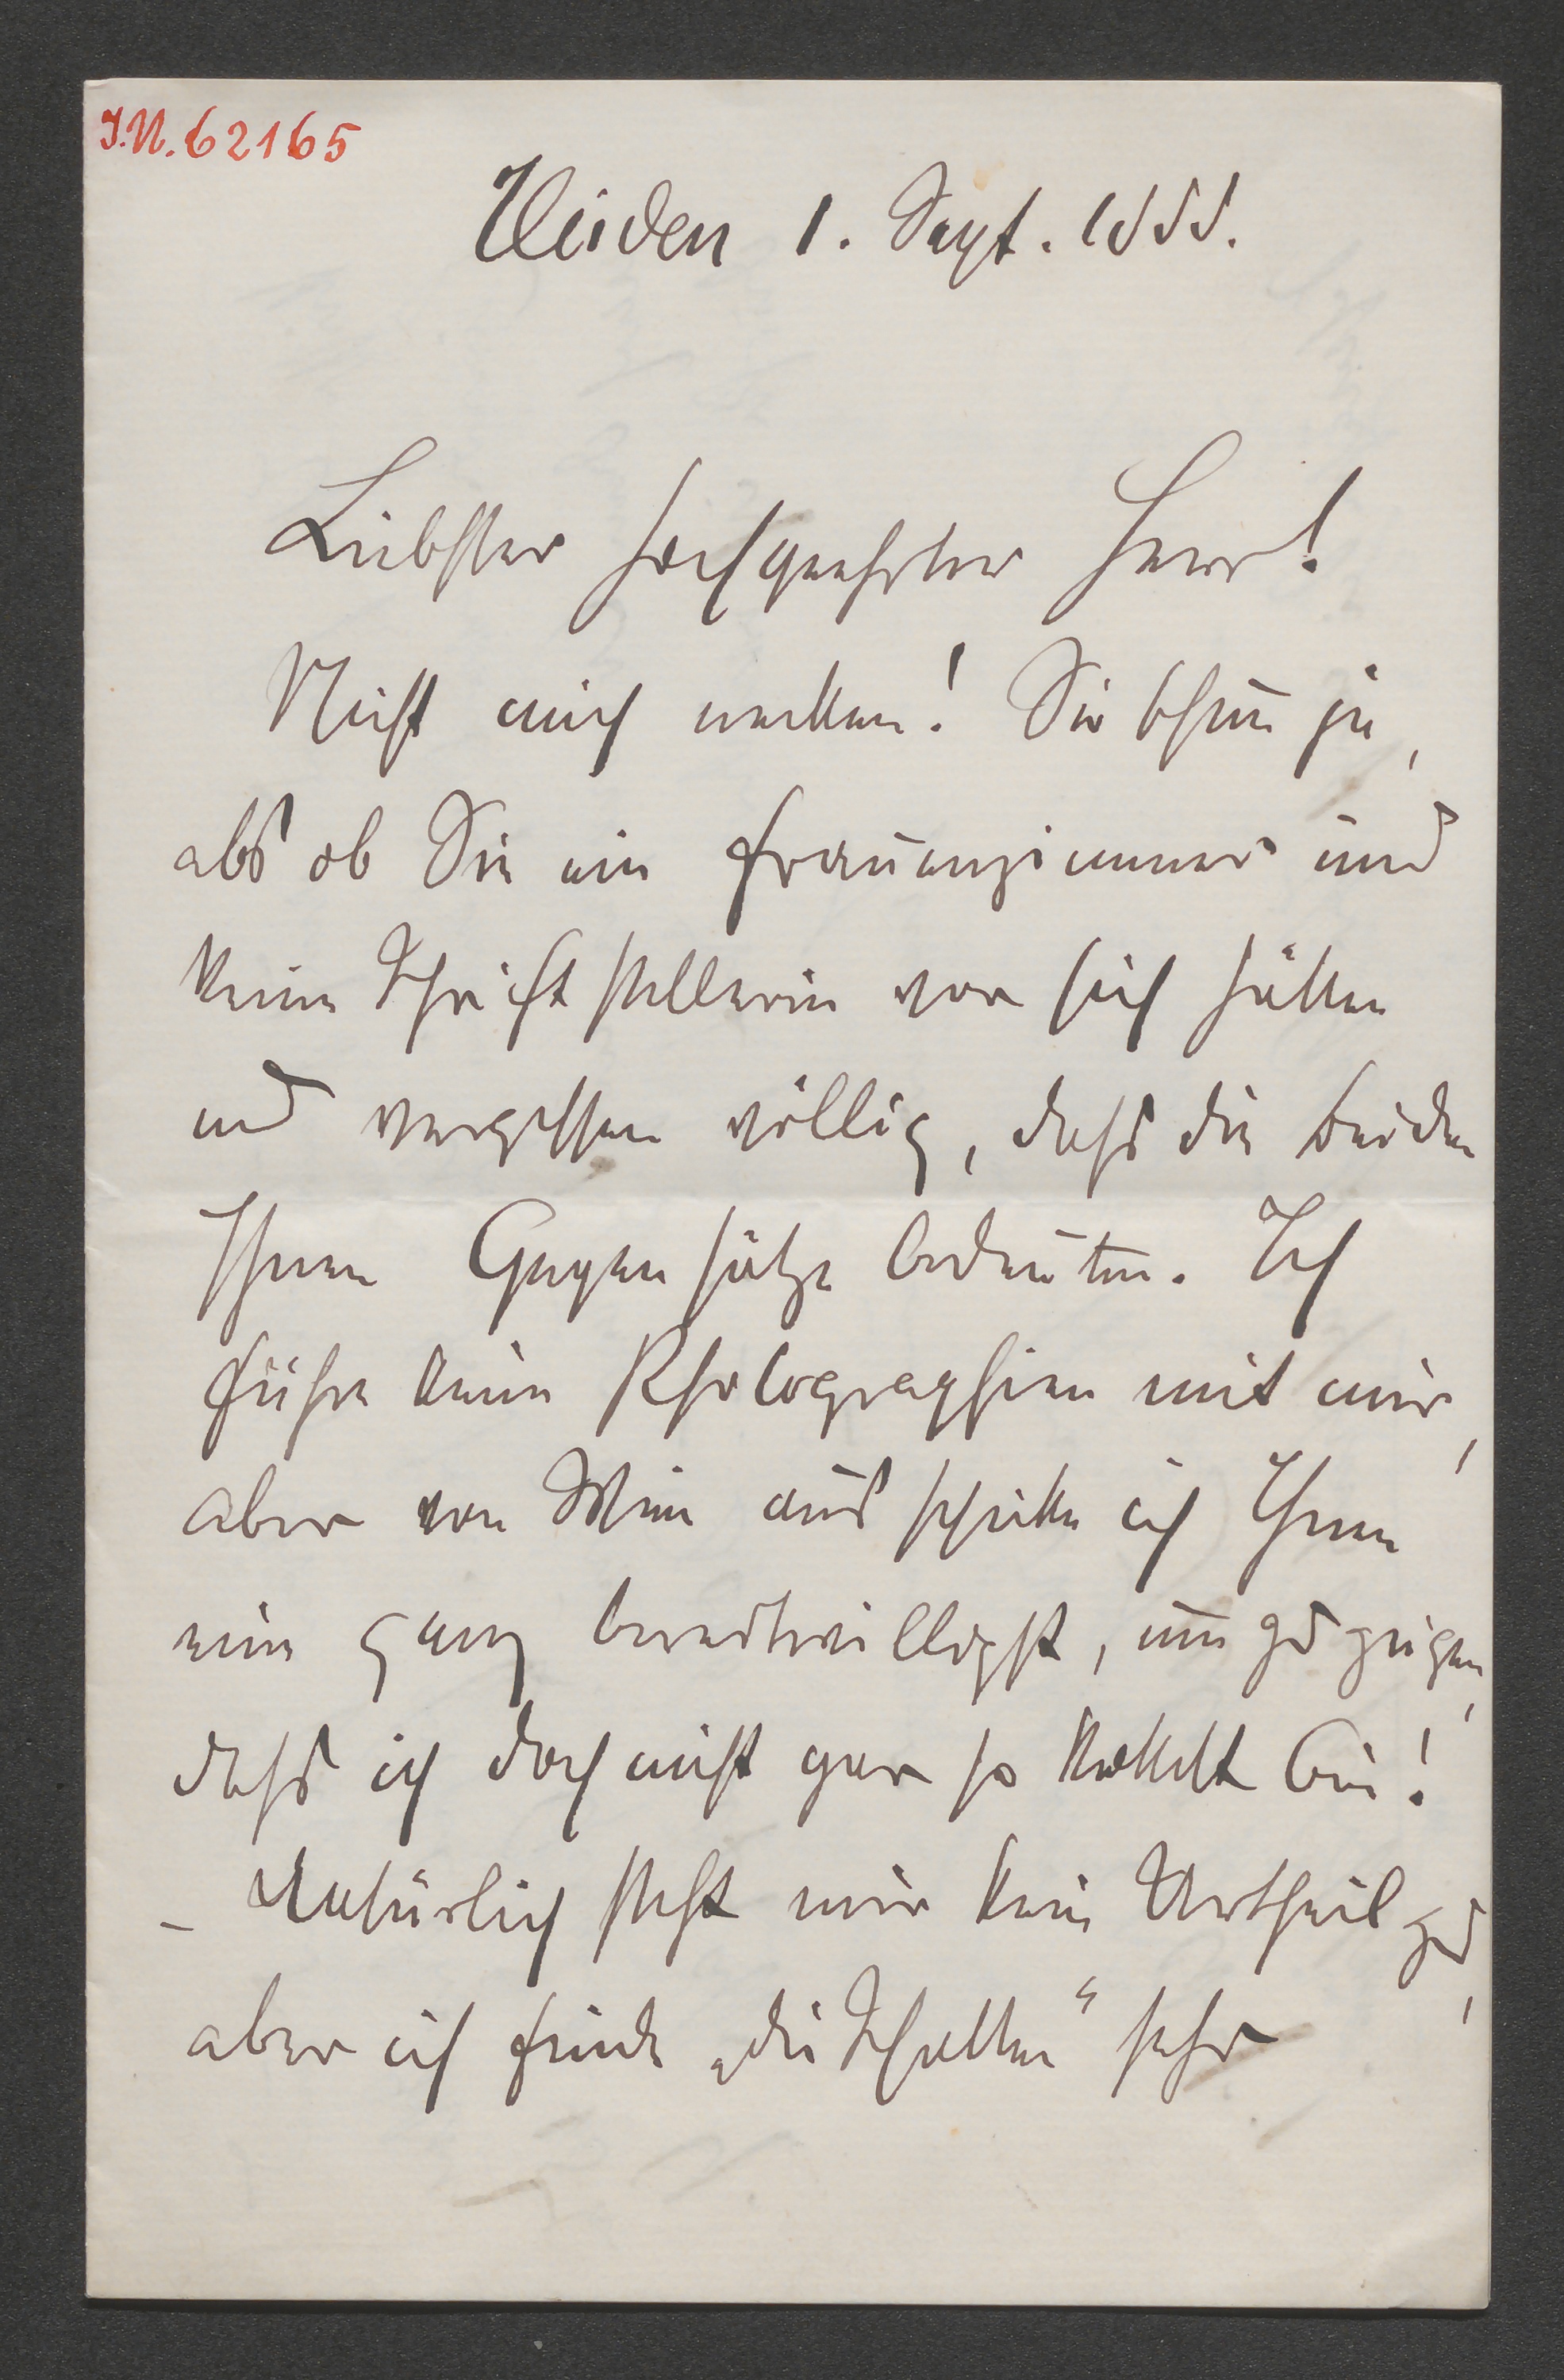 J.N. 62165
Heiden 1. Sept. 1888.
Liebster hochgeehrter Herr!
Nicht mich necken! Sie thun ja,
als ob Sie ein Frauenzimmer und
keine Schriftstellerin vor sich hätten
und vergessen völlig, daſs die beiden
Ihnen Gegensätze bedeuten. Ich
führe keine Photographien mit mir,
aber von Wien aus schicke ich Ihnen
eine ganz bereitwilligst, um zu zeigen,
daſs ich doch nicht gar so kokett bin!
– Natürlich steht mir kein Urtheil zu,
aber ich finde „die Schatten“ sehr